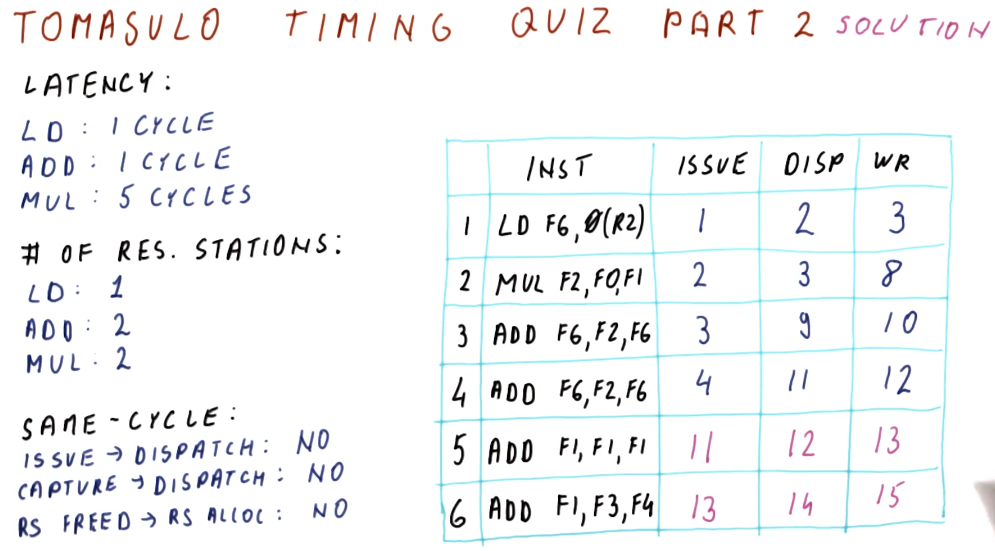 TOMASULO TIMING QUIZ PART 2 SOLUTION
LATENCY:
LD: 1 CYCLE
ADD: 1 CYCLE
MUL: 5 CYCLES
# OF RES. STATIONS:
LD: 1
ADD: 2
MUL: 2
SAME-CYCLE:
ISSUE → DISPATCH: NO
CAPTURE → DISPATCH: NO
RS FREED → RS ALLOC: NO
INST ISSUE DISP WR
1 LD F6, 0(R2) 1 2 3
2 MUL F2, F0, F1 2 3 8
3 ADD F6, F2, F6 3 9 10
4 ADD F6, F2, F6 4 11 12
5 ADD F1, F1, F1 11 12 13
6 ADD F1, F3, F4 13 14 15